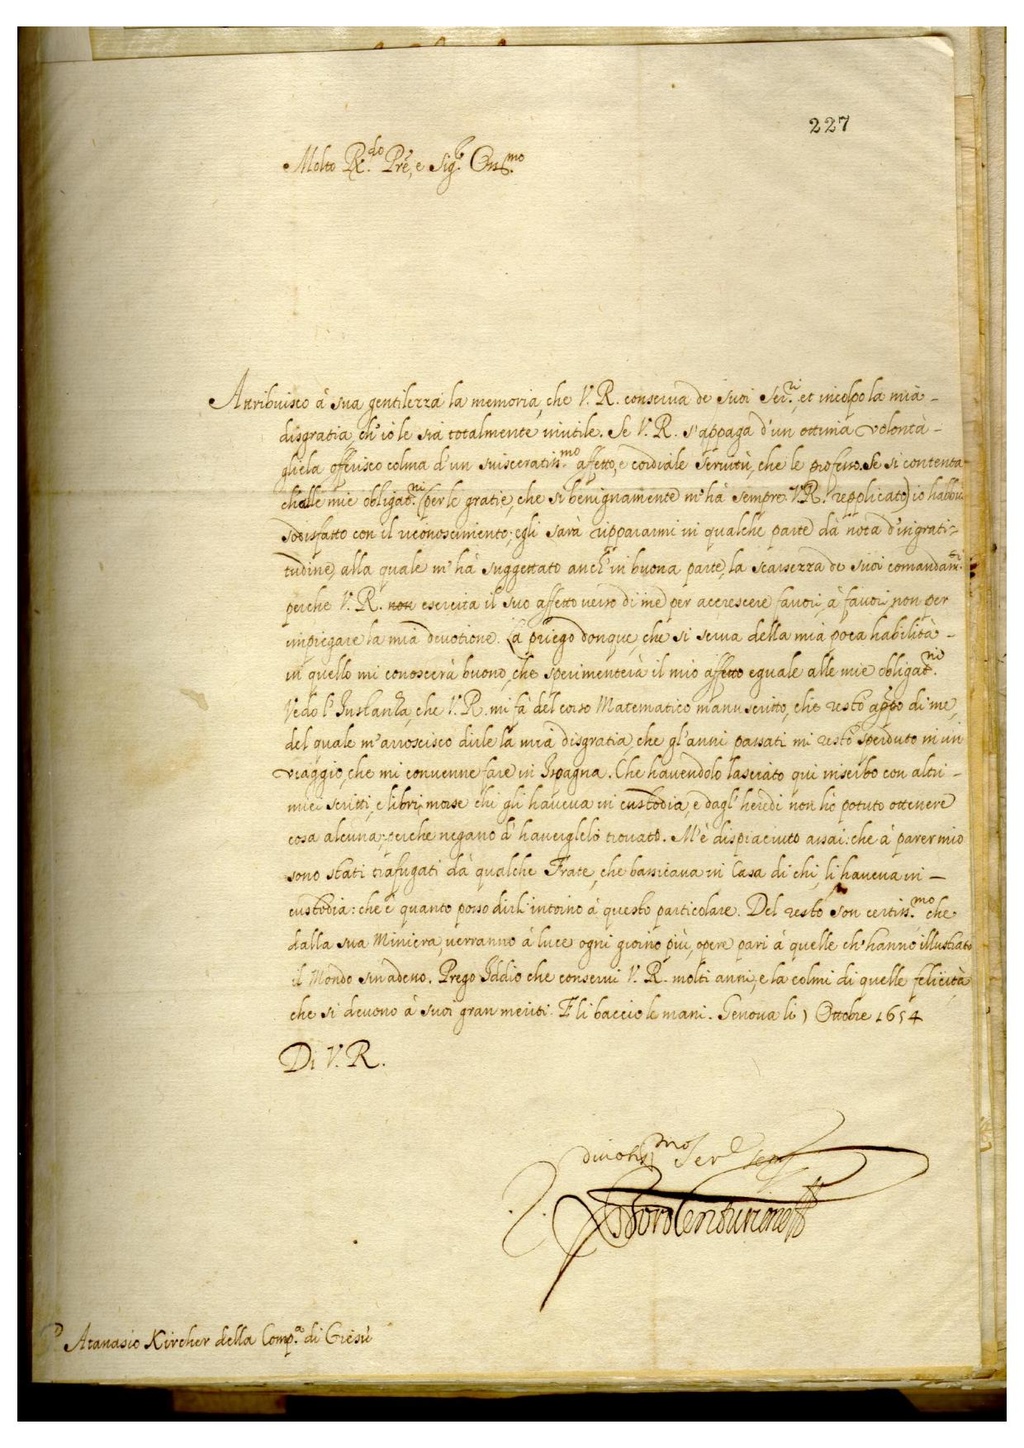 227
Molto R.do Pre, e Sig.r Oss.mo
Attribuisco à sua gentilezza la memoria, che V. R. conserva de suoi Ser.ri, et incolpo la mia
disgratia, ch'io le sia totalmente inutile. Se V. R. s'appaga d'un ottima volontà
gliela offerisco colma d'un svisceratiss.mo affetto, e cordiale servitù, che le professo. Se si contenta
che alle mie obligat.ni (per le gratie, che sì benignamente m'hà sempre V. R. replicato) io habbia
sodisfatto con il riconoscimento; egli sarà un ripararmi in qualche parte dà nota d'ingrati-
tudine, alla quale m'hà suggettato anch'in buona parte, la scarsezza de suoi comandam.ti
perche V. R. non esercita il suo affetto verso di me per accrescere favori, à favori, non per
impiegare la mia devotione. La priego donque, che si serva della mia poca habilità
in quello mi conoscerà buono, che sperimenterà il mio affetto eguale alle mie obligat.ni
Vedo l'Instanza, che V. R. mi fà del corso Matematico manuscritto, che restò appo di me,
del quale m'arroscisco dirle la mia disgratia, che gl'anni passati mi restò sperduto in un
viaggio, che mi convenne fare in Spagna. Che havendolo lasciato qui in serbo con altri
miei scritti, e libri, morse chi gli haveva in custodia, e dagl'heredi non hò potuto ottenere
cosa alcuna; perche negano d'haverglelo trovato. M'è dispiaciuto assai: che à parer mio
sono stati trafugati dà qualche Frate, che bassicava in Casa di chi li haveva in
custodia: che è quanto posso dirl'intorno à questo particolare. Del resto son certiss.mo che
dalla sua Miniera, verranno à luce ogni giorno più, opere pari à quelle ch'hanno illustrato
il Mondo sin adesso. Prego Iddio che conservi V. R. molti anni, e la colmi di quelle felicità
che si devono à suoi gran meriti. E li baccio le mani. Genova li Ottobre 1654
Di V. R.
divotiss.mo Ser.e
Centurione
P. Atanasio Kircher della Comp.a di Giesù